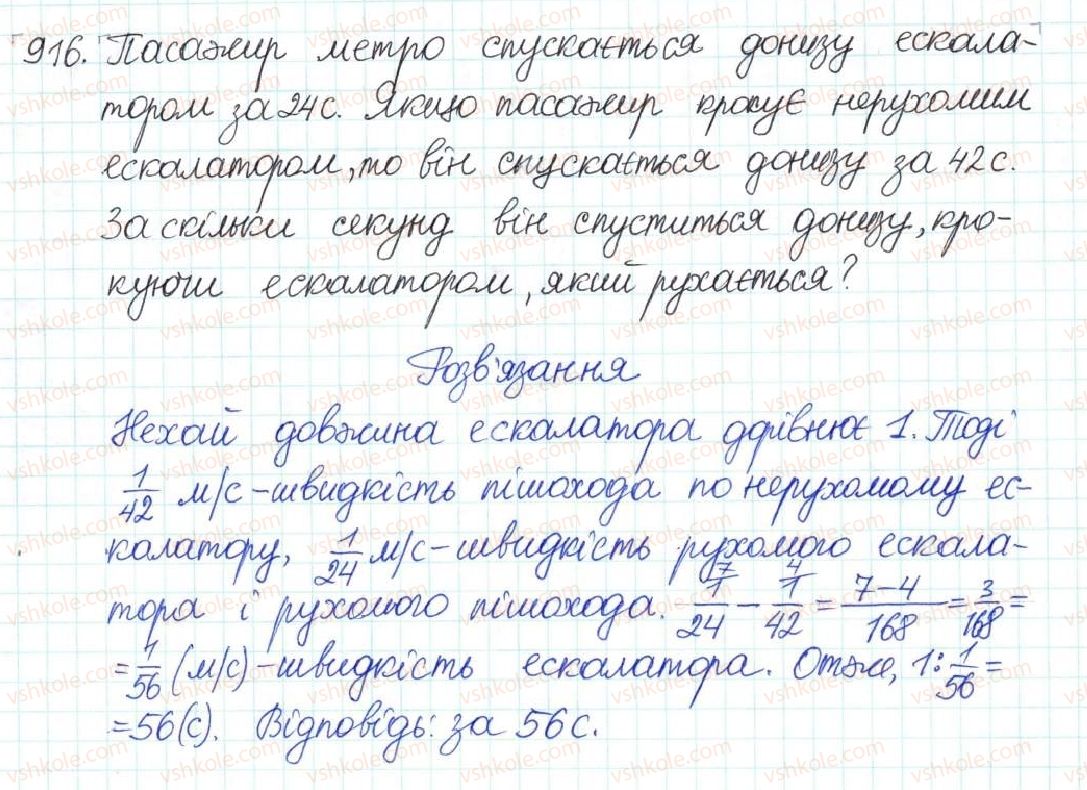 916. Пасажир метро спускається донизу ескала-
тором за 24с. Якщо пасажир крокує нерухомим
ескалатором, то він спускається донизу за 42с.
За скільки секунд він спуститься донизу, кро-
куючи ескалатором, який рухається?
Розв'язання
Нехай довжина ескалатора дорівнює 1. Тоді
1/42 м/с - швидкість пішохода по нерухомому ес-
калатору, 1/24 м/с - швидкість рухомого ескала-
тора і рухомого пішохода. 7/ 1/24 - 4/ 1/42 = 7-4/168 = 3/168 =
= 1/56 (м/с) - швидкість ескалатора. Отже, 1: 1/56 =
= 56(с). Відповідь: за 56с.